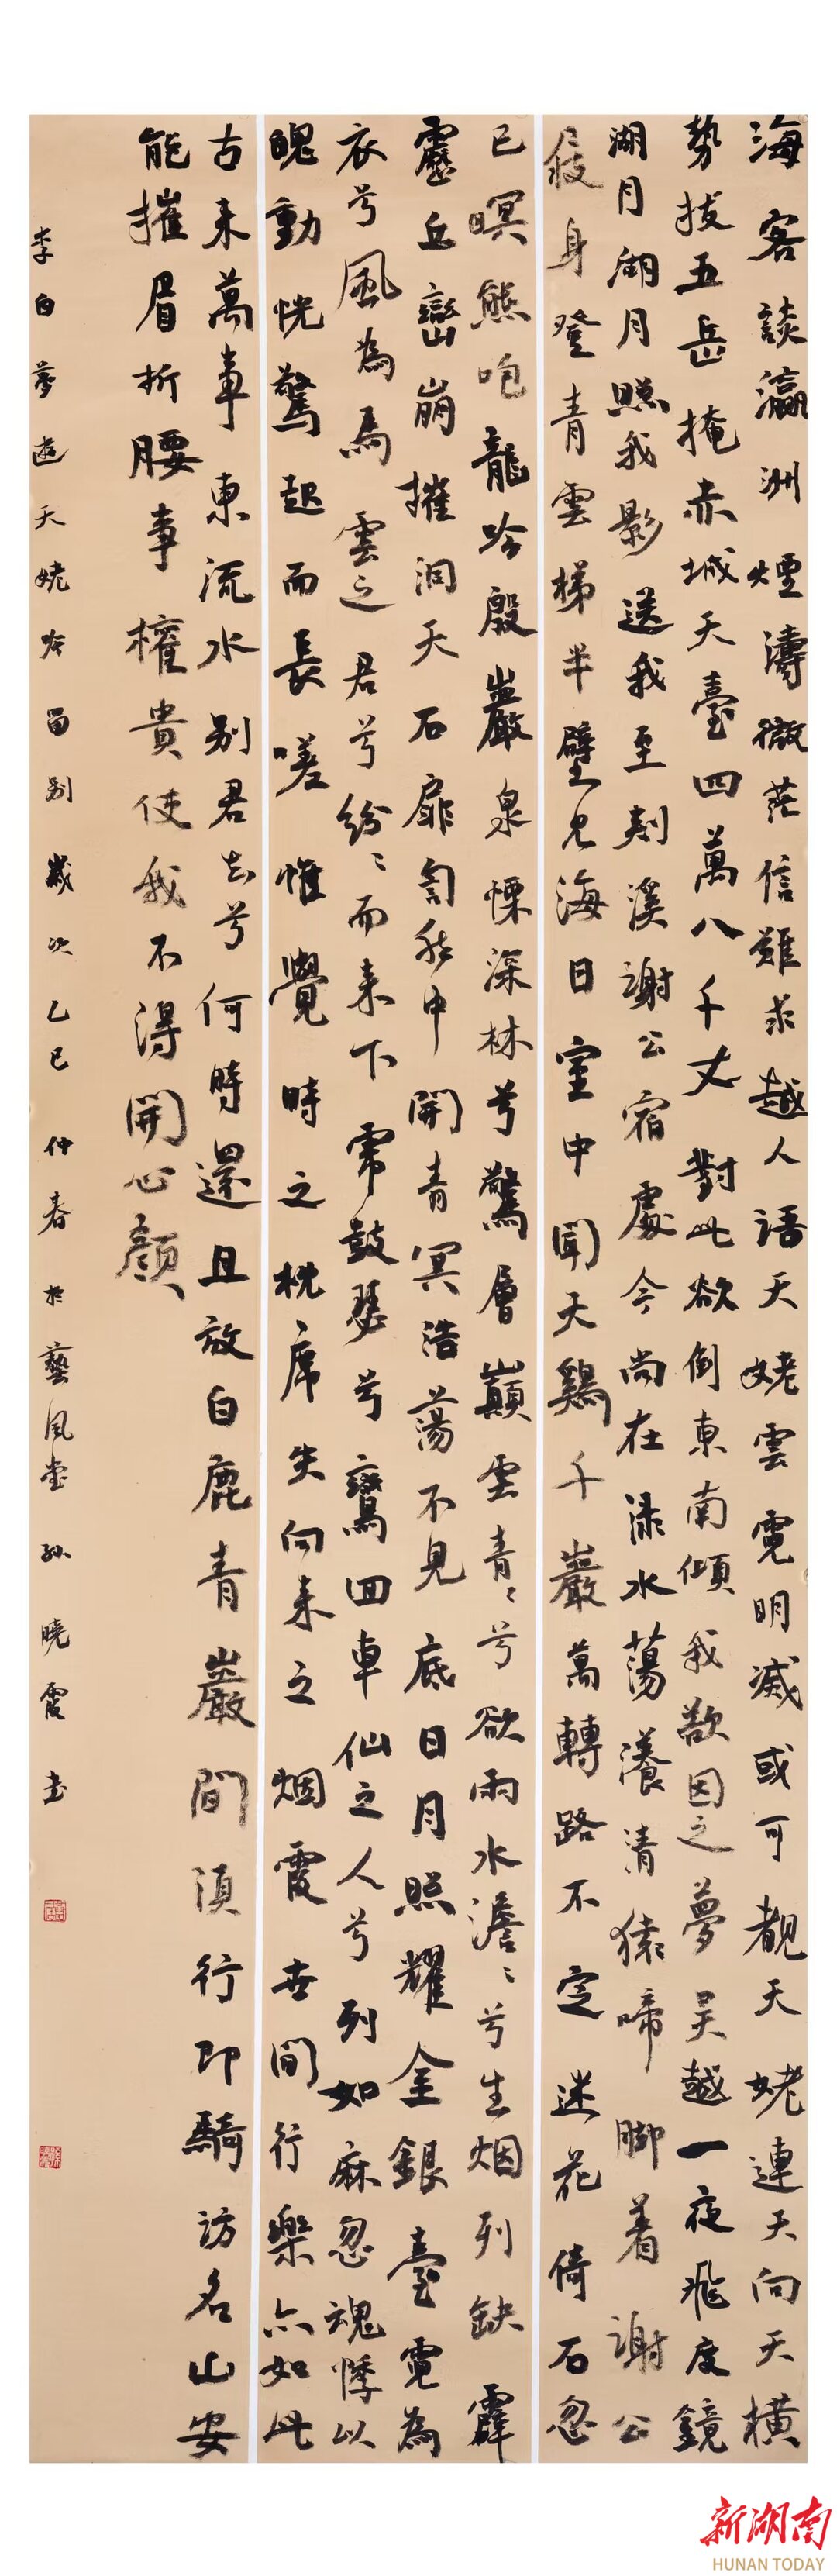 海客談瀛洲煙濤微茫信難求越人語天姥雲霓明滅或可覩天姥連天向天橫
勢拔五岳掩赤城天臺四萬八千丈對此欲倒東南傾我欲因之夢吴越一夜飛度鏡
湖月湖月照我影送我至剡溪謝公宿處今尚在渌水蕩漾清猿啼脚着謝公
屐身登青雲梯半壁見海日空中聞天鷄千巖萬轉路不定迷花倚石忽
已暝熊咆龍吟殷巖泉慄深林兮驚層巔雲青〻兮欲雨水澹〻兮生烟列缺霹
靂丘巒崩摧洞天石扉訇然中開青冥浩蕩不見底日月照耀金銀臺霓為
衣兮風為馬雲之君兮紛〻而来下虎鼓瑟兮鸞回車仙之人兮列如麻忽魂悸以
魄動恍驚起而長嗟惟覺時之枕席失向来之烟霞世間行樂亦如此
古来萬事東流水别君去兮何時還且放白鹿青巖間須行即騎訪名山安
能摧眉折腰事權貴使我不得開心顔
李白夢遊天姥吟留别歲次乙巳仲春於藝風堂孙曉霞书
新湖南
HUNAN TODAY